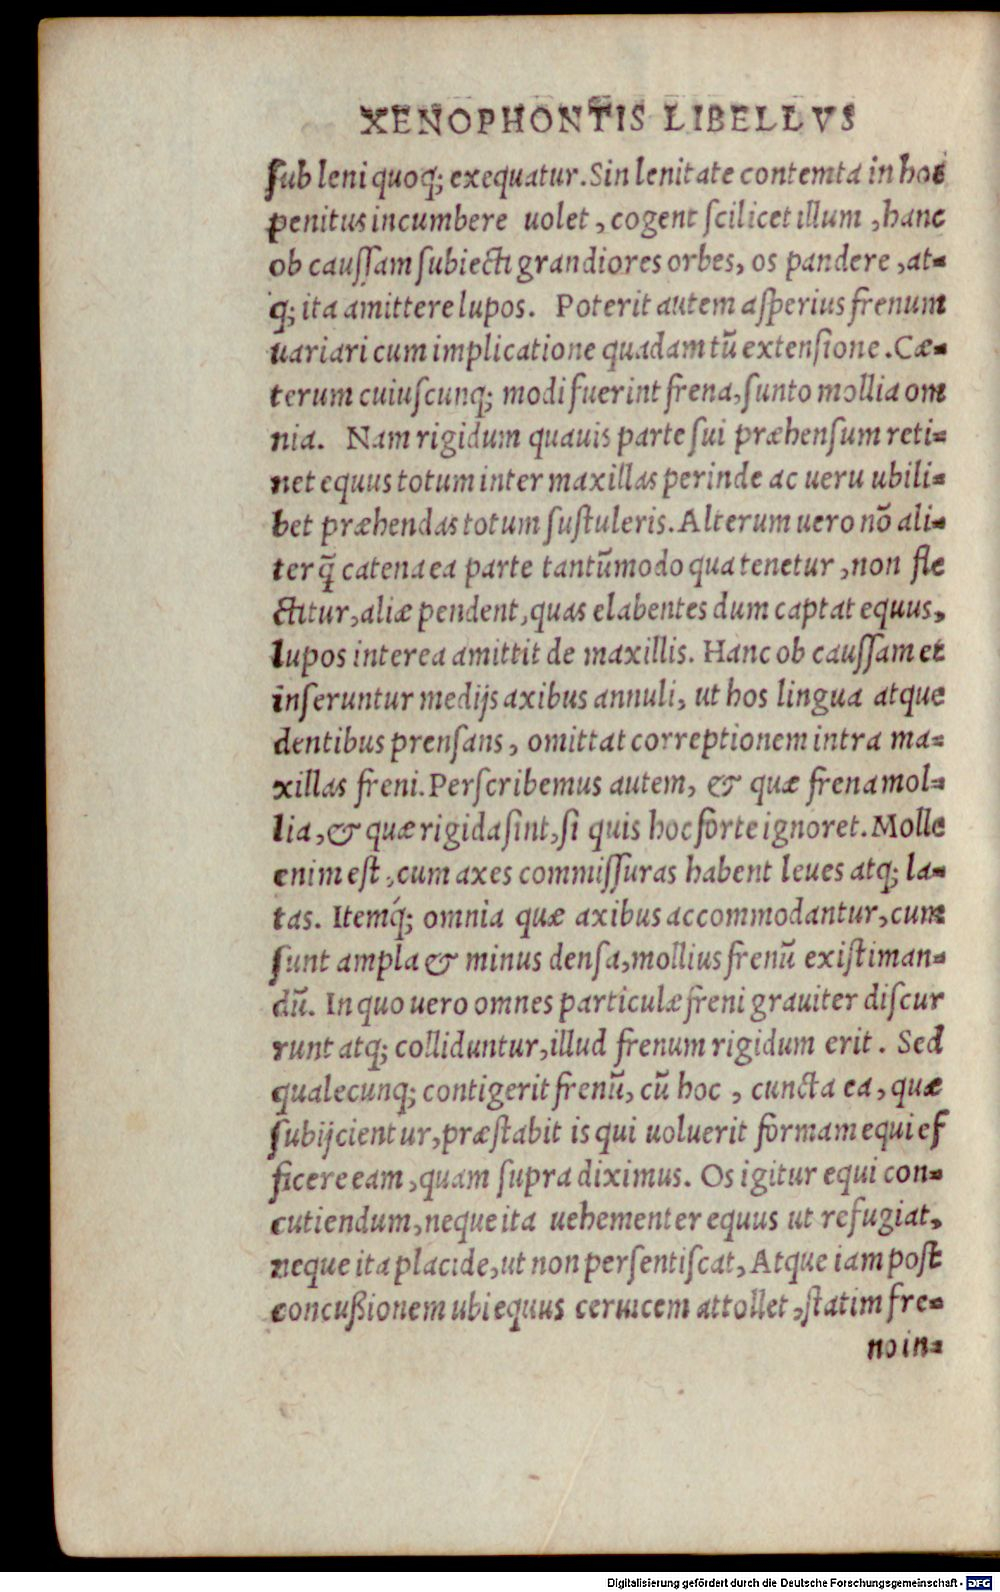 XENOPHONTIS LIBELLVS
ſub leni quoq; exequatur. Sin lenitate contemta in hos
penitus incumbere uolet, cogent ſcilicet illum, hanc
ob cauſſam ſubiecti grandiores orbes, os pandere, at-
q; ita amittere lupos. Poterit autem aſperius frenum
uariari cum implicatione quadam tū extenſione. Cæ-
terum cuiuſcunq; modi fuerint frena, ſunto mollia om
nia. Nam rigidum quauis parte ſui præhenſum reti-
net equus totum inter maxillas perinde ac ueru ubili-
bet præhendas totum ſuſtuleris. Alterum uero nō ali-
ter q̄ catena ea parte tantūmodo qua tenetur, non fle
ctitur, aliæ pendent, quas elabentes dum captat equus,
lupos interea amittit de maxillis. Hanc ob cauſſam et
inſeruntur medijs axibus annuli, ut hos lingua atque
dentibus prenſans, omittat correptionem intra ma-
xillas freni. Perſcribemus autem, & quæ frena mol-
lia, & quæ rigida ſint, ſi quis hoc forte ignoret. Molle
enim eſt, cum axes commiſſuras habent leues atq; la-
tas. Itemq́; omnia quæ axibus accommodantur, cum
ſunt ampla & minus denſa, mollius frenū exiſtiman-
dū. In quo uero omnes particulæ freni grauiter diſcur
runt atq; colliduntur, illud frenum rigidum erit. Sed
qualecunq; contigerit frenū, cū hoc, cuncta ea, quæ
ſubijcientur, præſtabit is qui uoluerit formam equi ef
ficere eam, quam ſupra diximus. Os igitur equi con-
cutiendum, neque ita uehementer equus ut refugiat,
neque ita placide, ut non perſentiſcat, Atque iam poſt
concußionem ubi equus ceruicem attollet, ſtatim fre-
no in-
Digitalisierung gefördert durch die Deutsche Forschungsgemeinschaft - DFG